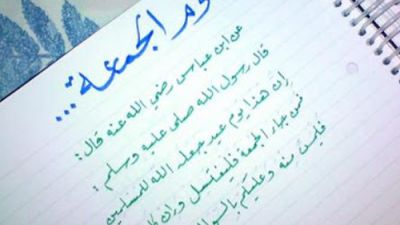 يوم الجمعة...
عن ابن عباس رضي الله عنه قال:
قال رسول الله صلى عليه وسلم:
إن هذا يوم عيد جعله الله للمسلمين
فمن جاء الجمعة فليغتسل وإن كا
فليمس منه وعليكم بالسوا